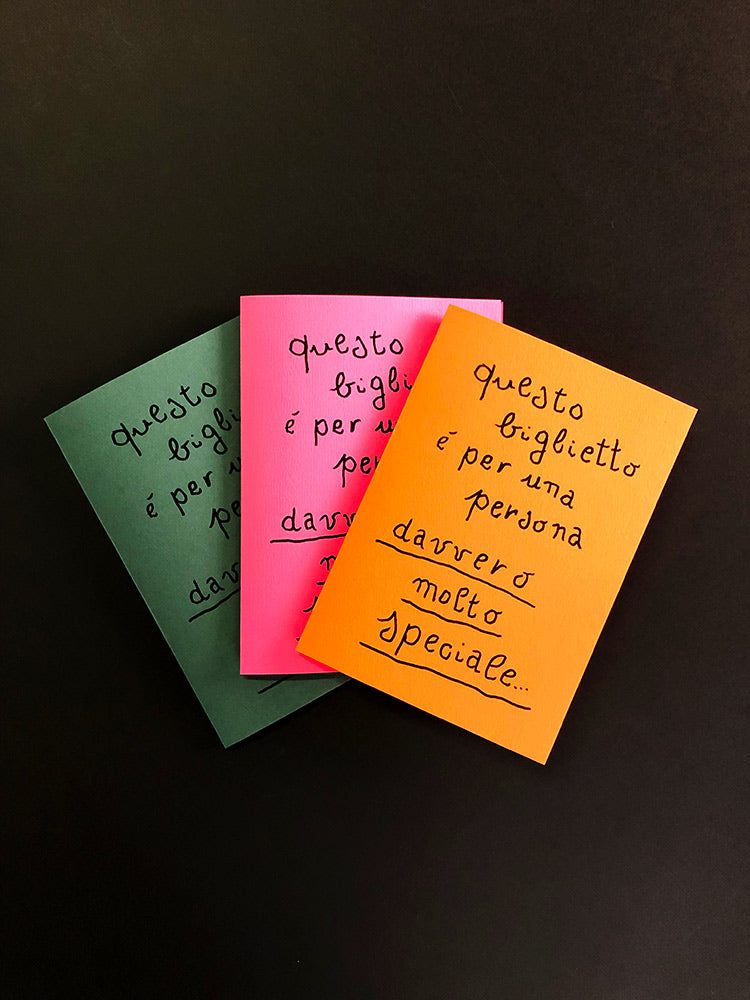 questo
bigli
é per u
pe
dav
questo
bigli
é per u
per
davv
questo
biglietto
é per una
persona
davvero
molto
speciale...